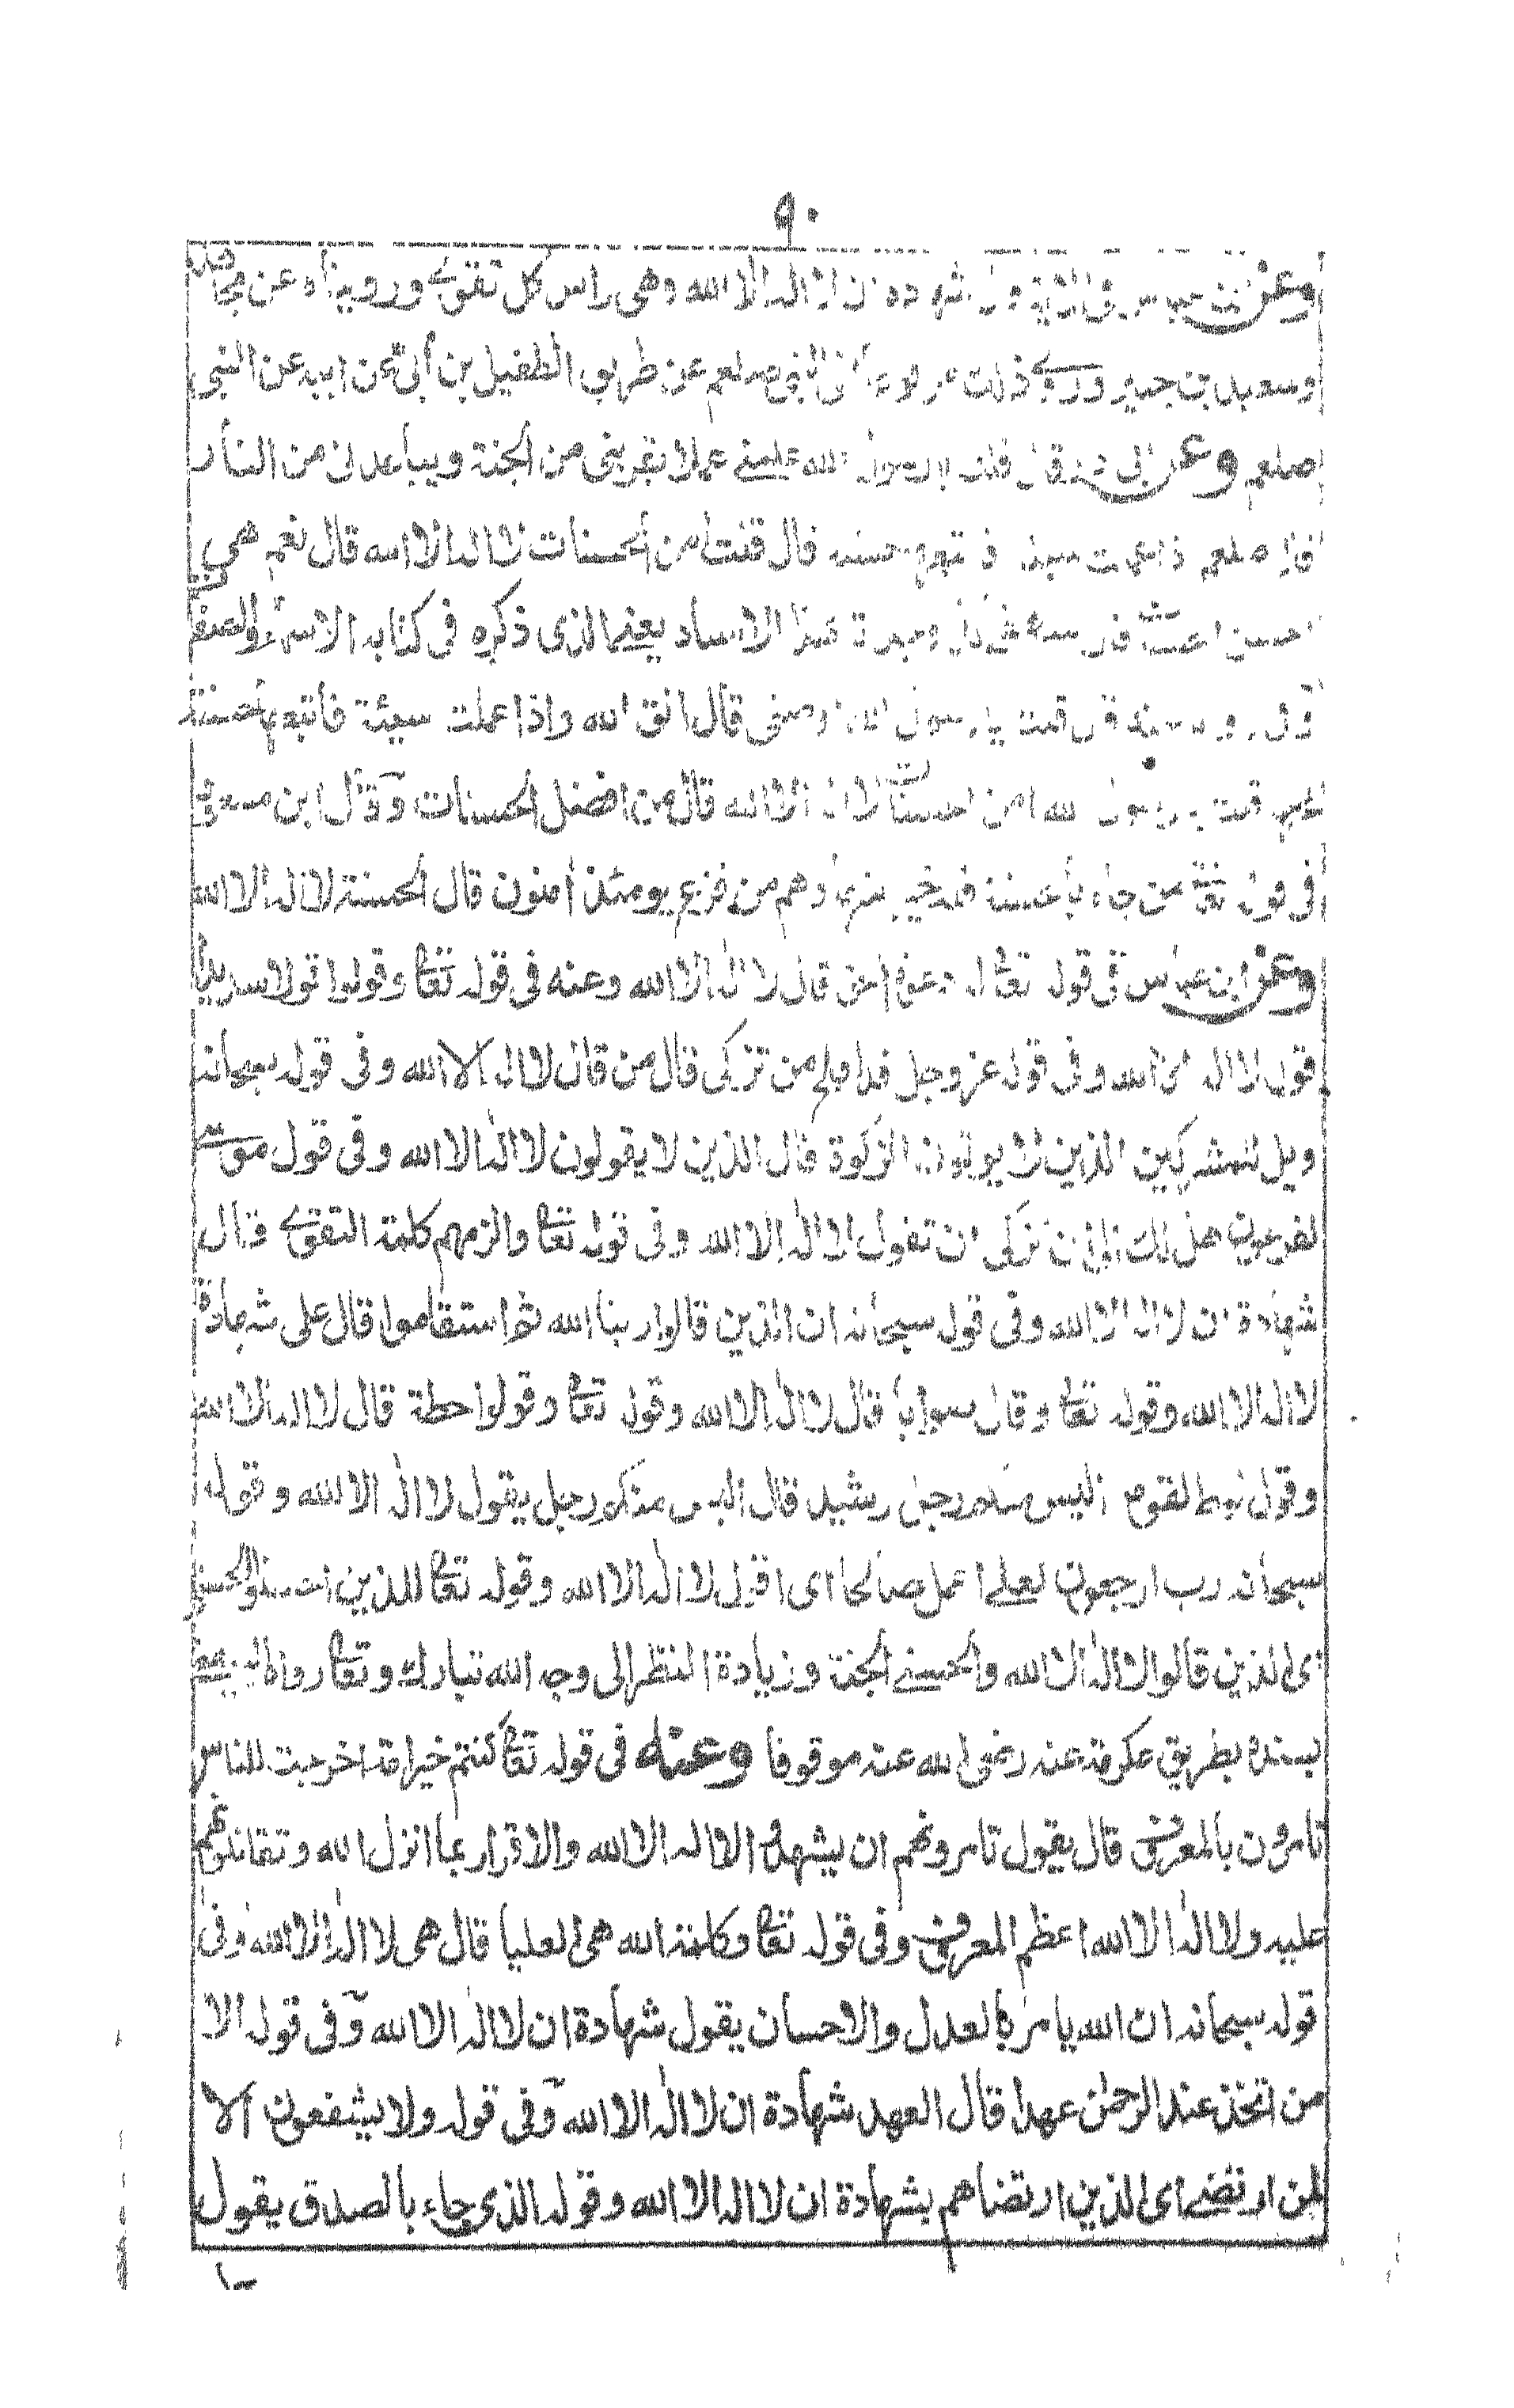 ٩٠
وعن ابن عباس في الآية قال شهادة ان لا اله الا الله وهى راس كل تقوى ورويناه عن مجاهد
وسعيد بن جبير وروى ذلك مرفوعا الى النبي صلعم عن طريق الطفيل بن أبى عن ابيه عن النبي
صلعم وعن ابى ذر قال قلت يا رسول الله علمني عملا يقربنى من الجنة ويباعدنى من النار
قال صلعم اذا عملت سيئة فاتبعها حسنة قال قلت أمن الحسنات لا اله الا الله قال نعم هى
احسن الحسنات الاسناد يعنى الذى ذكره فى كتابه الاسماء والصفات
قال قلت يا رسول الله اوصنى قال اتق الله واذا عملت سيئة فأتبعها حسنة
تمحها قلت يا رسول الله امن الحسنات لا اله الا الله قال من افضل الحسنات وقال ابن مسعود
فى قوله تعالى من جاء بالحسنة فله خير منها وهم من فزع يومئذ آمنون قال الحسنة لا اله الا الله
وعن ابن عباس فى قوله تعالى له دعوة الحق قال لا اله الا الله وعنه فى قوله تعالى وقولوا قولا سديدا
قول لا اله الا الله وفى قوله عز وجل قد افلح من تزكى قال من قال لا اله الا الله وفى قوله سبحانه
ويل للمشركين الذين لا يوتون الزكوة قال الذين لا يقولون لا اله الا الله وفى قول موسى
لفرعون هل لك الى ان تزكى ان تقول لا اله الا الله وفى قوله تعالى والزمهم كلمة التقوى قال
شهادة ان لا اله الا الله وفى قوله سبحانه ان الذين قالوا ربنا الله ثم استقاموا قال على شهادة
لا اله الا الله وقوله تعالى وقال صوابا قال لا اله الا الله وقوله تعالى وقولوا حطة قال لا اله الا الله
وقول لوط لقومه اليس منكم رجل رشيد قال اليس منكم رجل يقول لا اله الا الله وقوله
سبحانه رب ارجعون لعلى اعمل صالحا اى اقول لا اله الا الله وقوله تعالى للذين احسنوا الحسنى
اى للذين قالوا لا اله الا الله والحسنى الجنة وزيادة النظر الى وجه الله تبارك وتعالى رواه البيهقى
بسنده بطريق عكرمة عنه رضى الله عنه موقوفا وعنه فى قوله تعالى كنتم خير امة اخرجت للناس
تامرون بالمعروف قال يقول تامرونهم ان يشهدوا الا اله الا الله والاقرار بما انزل الله وتقاتلونهم
عليه ولا اله الا الله اعظم المعروف وفى قوله تعالى وكلمة الله هى العليا قال هى لا اله الا الله وفى
قوله سبحانه ان الله يامر بالعدل والاحسان يقول شهادة ان لا اله الا الله وفى قوله الا
من اتخذ عند الرحمن عهدا قال العهد شهادة ان لا اله الا الله وفى قوله ولا يشفعون الا
لمن ارتضى اى الذين ارتضاهم بشهادة ان لا اله الا الله وقوله الذى جاء بالصدق يقول